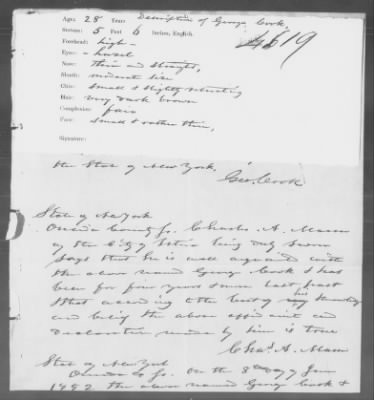 Age: 28 Years Description of George Cook.
Stature: 5 Feet 6 Inches, English.
4619
Forehead: high
Eyes: hazel
Nose: thin and straight,
Mouth: moderate size
Chin: small & slightly retreating
Hair: very dark brown
Complexion: fair
Face: small & rather thin,
Signature:
the State of New York.
Geo. Cook
State of New York
Oneida County ss. Charles A. Mason
of the City of Utica being duly sworn
says that he is well acquainted with
the above named George Cook & has
been for four years & more last past
that according to the best of his knowledge
and belief the above affidavit and
declaration made by him is true
Chas. A. Mason
State of New York
Oneida Co ss. On the 8th day of June
1882 the above named George Cook &